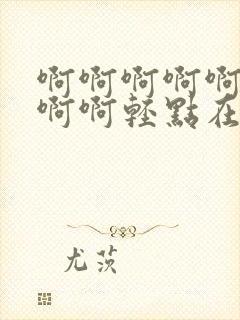 啊啊啊啊啊
啊啊輕點在
尤茨